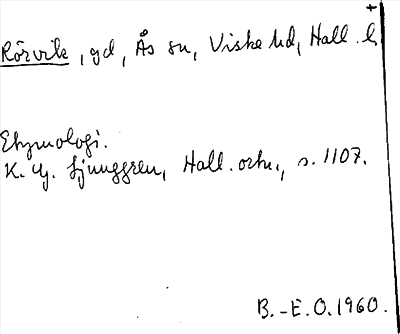 +
Rörvik, gd, Ås sn, Viske hd, Hall. l.
Etymologi.
K. G. Ljunggren, Hall. ortn., s. 1107.
B.-E.O. 1960.